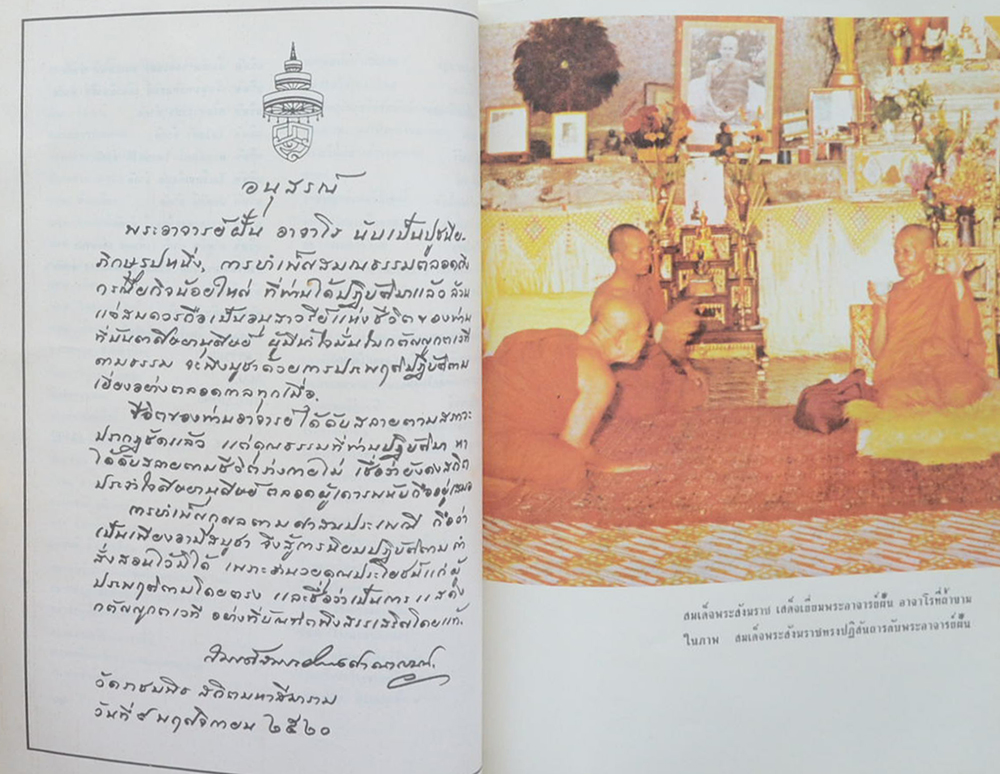 อนุสรณ์
พระอาจารย์ฝั้น อาจาโร นับเป็นปูชนีย-
ภิกษุรูปหนึ่ง, การบำเพ็ญสมณธรรมตลอดถึง
กรณียกิจน้อยใหญ่ ที่ท่านได้ปฏิบัติมาแล้ว ล้วน
แต่สมควรถือเป็นอนุสาวรีย์แห่งชีวิตของท่าน
ที่บันดาศิษยานุศิษย์ ผู้มีน้ำใจมั่นในกตัญญูกตเวที
ตามธรรม จะพึงบูชาด้วยการประพฤติปฏิบัติตาม
เยี่ยงอย่างตลอดกาลทุกเมื่อ.
ชีวิตของท่านอาจารย์ได้ดับสลายตามสภาวะ
ปรากฏชัดแล้ว แต่คุณธรรมที่ท่านปฏิบัติมา หา
ได้ดับสลายตามชีวิตร่างกายไม่ เชื่อว่ายังคงสถิต
ประจำใจศิษยานุศิษย์ ตลอดผู้เคารพนับถืออยู่เสมอ
การบำเพ็ญกุศลตามศาสนประเพณี ถือว่า
เป็นเพียงอามิสบูชา จึงสู้การนิยมปฏิบัติตามคำ
สั่งสอนไว้มิได้ เพราะอำนวยคุณประโยชน์แก่ผู้
ประพฤติตามโดยตรง และชื่อว่าเป็นการแสดง
กตัญญูกตเวที อย่างที่บัณฑิตพึงสรรเสริญโดยแท้.
วัดราชบพิธ สถิตมหาสีมาราม
วันที่ ๕ พฤศจิกายน ๒๕๒๐
สมเด็จพระสังฆราช เสด็จเยี่ยมพระอาจารย์ฝั้น อาจาโรที่ถ้ำขาม
ในภาพ สมเด็จพระสังฆราชทรงปฏิสันถารกับพระอาจารย์ฝั้น